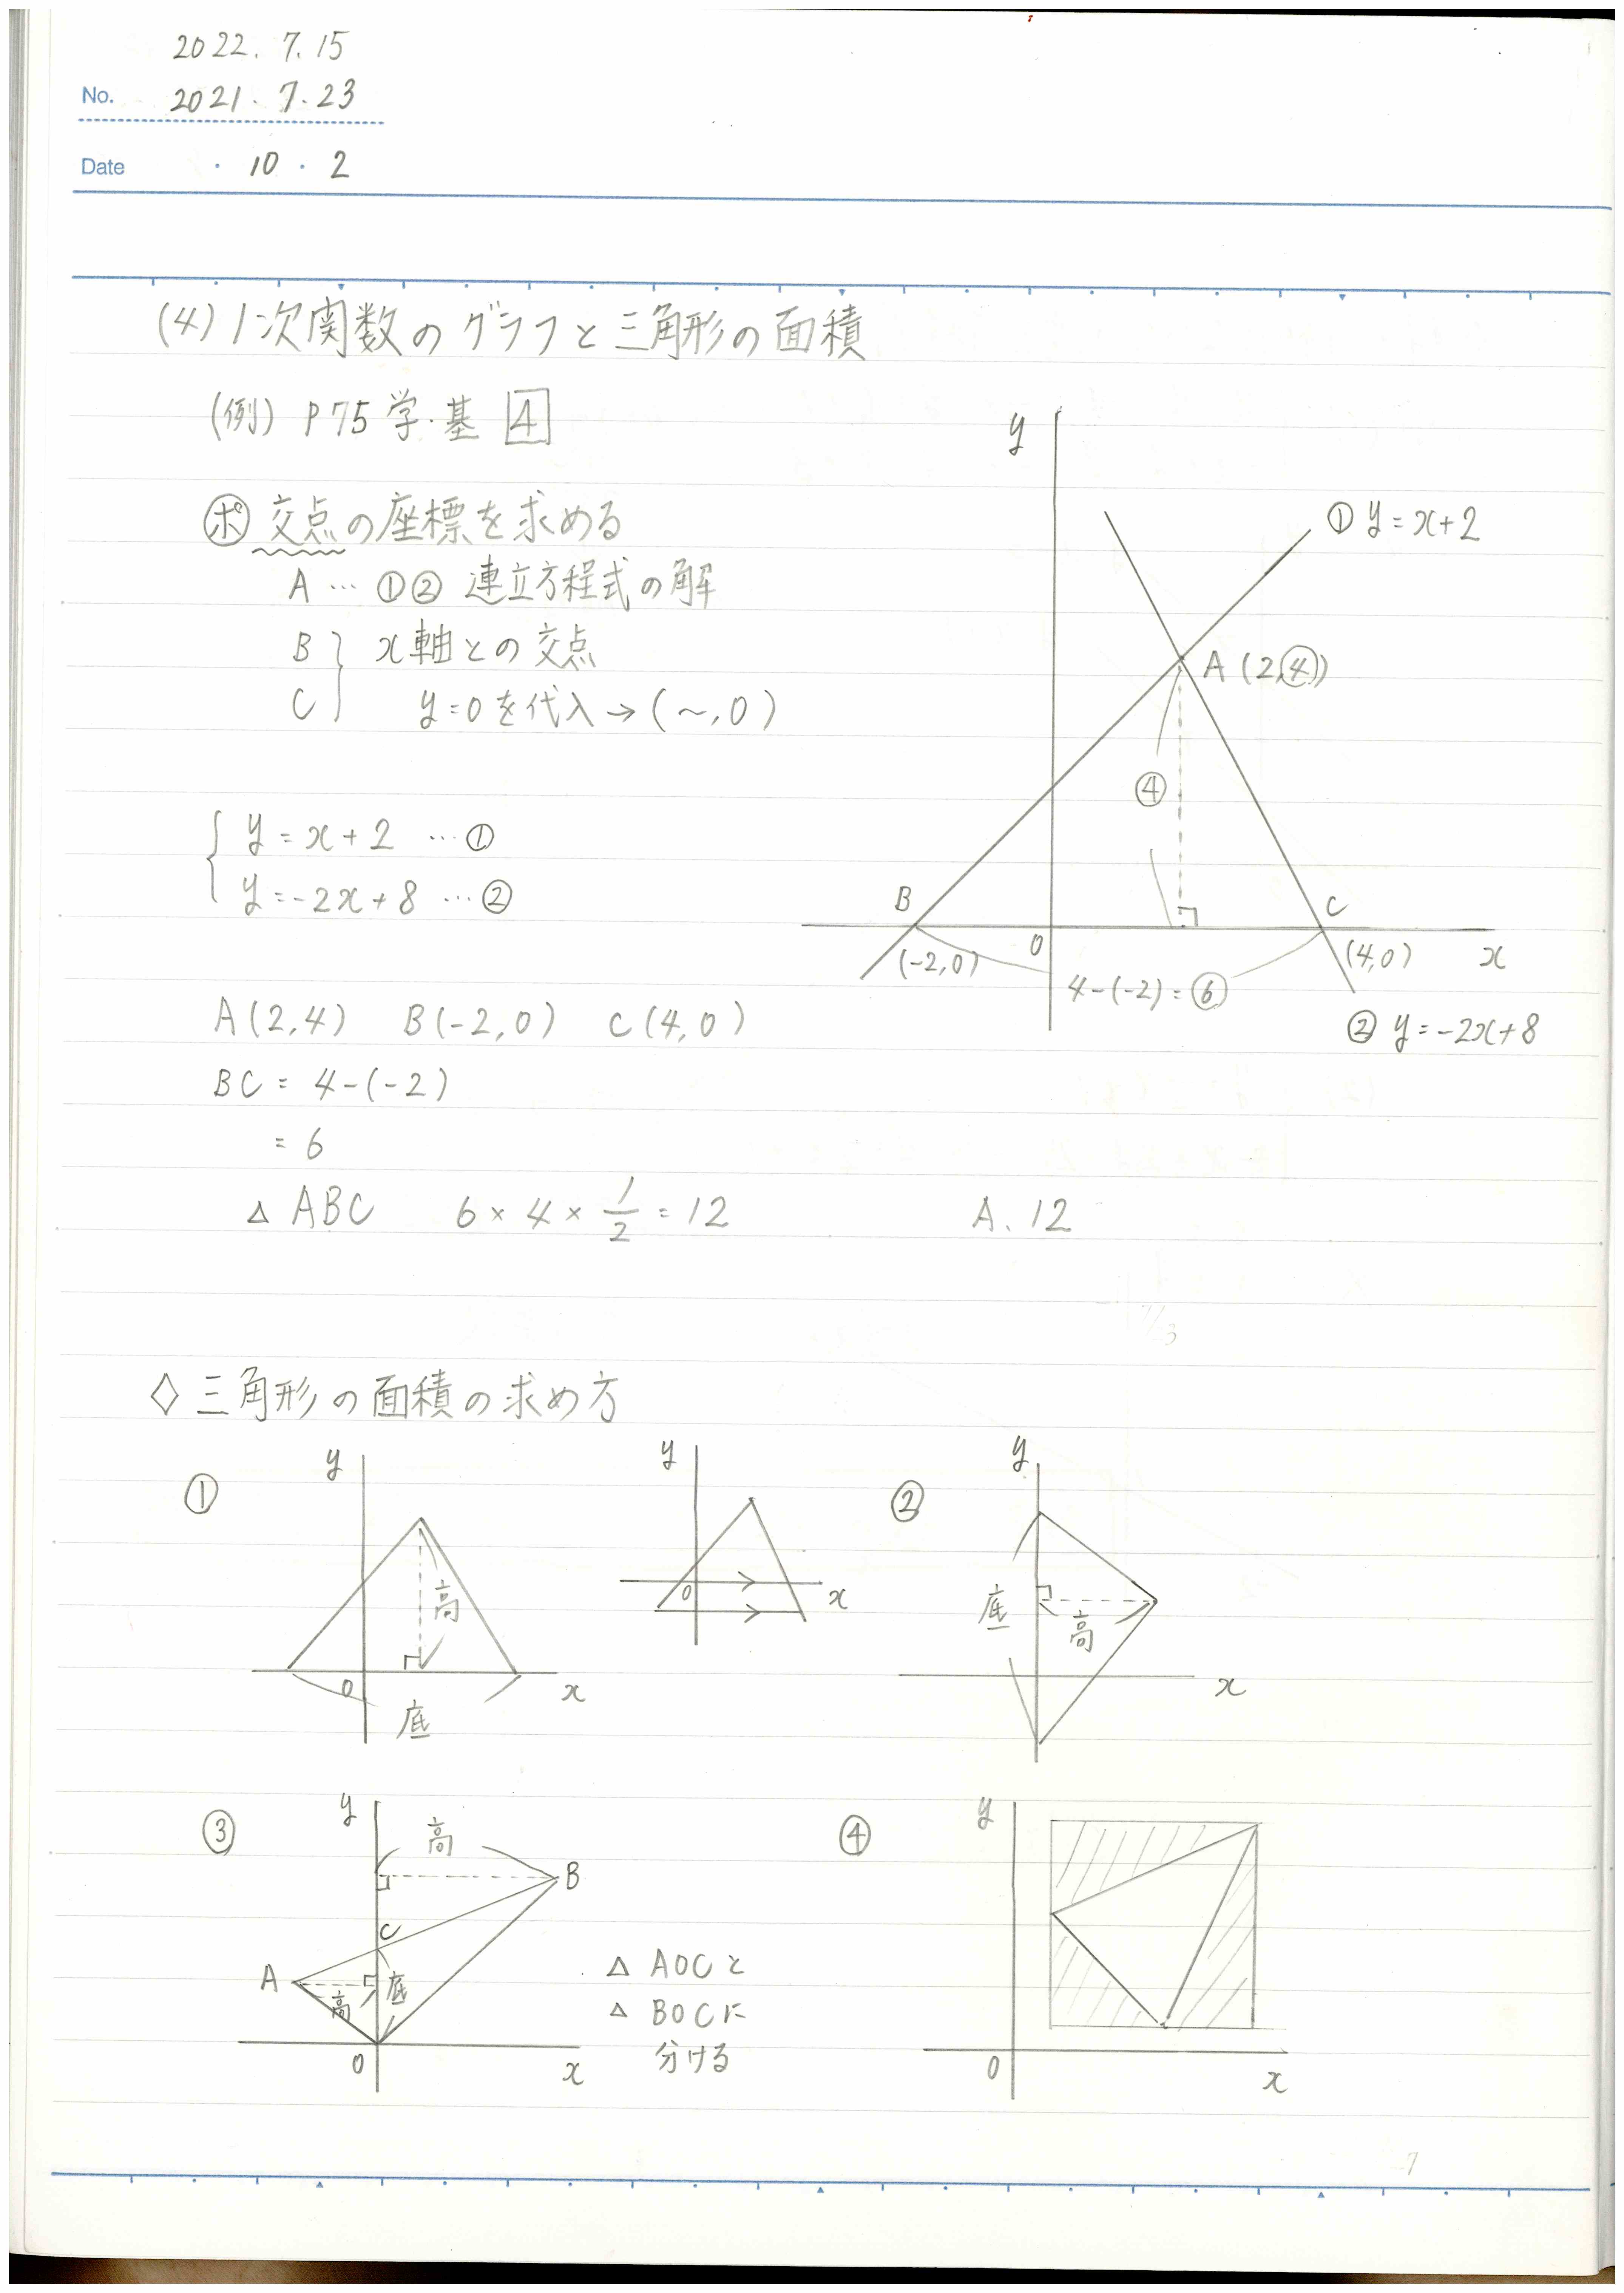 2022. 7. 15
No. 2021. 7. 23
Date ・ 10 ・ 2
(4) 1次関数のグラフと三角形の面積
(例) P75 学・基 4
ポ 交点の座標を求める
A … ①② 連立方程式の解
B } x軸との交点
C } y=0を代入→(〜,0)
y = x+2 …①
y = -2x+8 …②
A(2,4) B(-2,0) C(4,0)
BC = 4-(-2)
= 6
△ ABC 6×4×1/2=12 A. 12
y
① y=x+2
A(2,④)
④
B
C
(-2,0)
O
(4,0)
x
4-(-2)=⑥
② y=-2x+8
◇ 三角形の面積の求め方
①
y
高
O
x
底
y
O
x
②
y
底
高
x
③
y
高
B
C
A
底
高
O
x
△ AOCと
△ BOCに
分ける
④
y
O
x